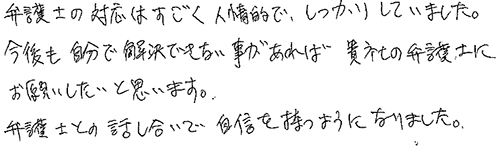 弁護士の対応はすごく人情的で、しっかりしていました。
今後も自分で解決できない事があれば貴社の弁護士に
お願いしたいと思います。
弁護士との話し合いで自信を持つようになりました。